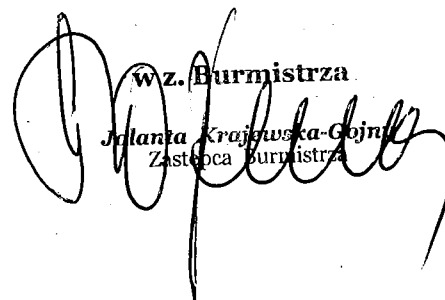 w z. Burmistrza
Jolanta Krajewska-Gojny
Zastępca Burmistrza